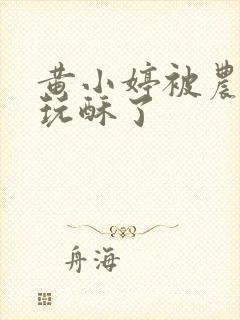 黄小婷被農
玩酥了
舟海